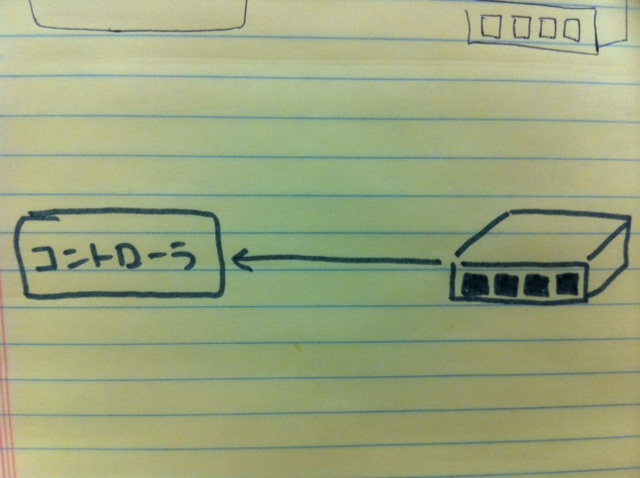 コントローラ